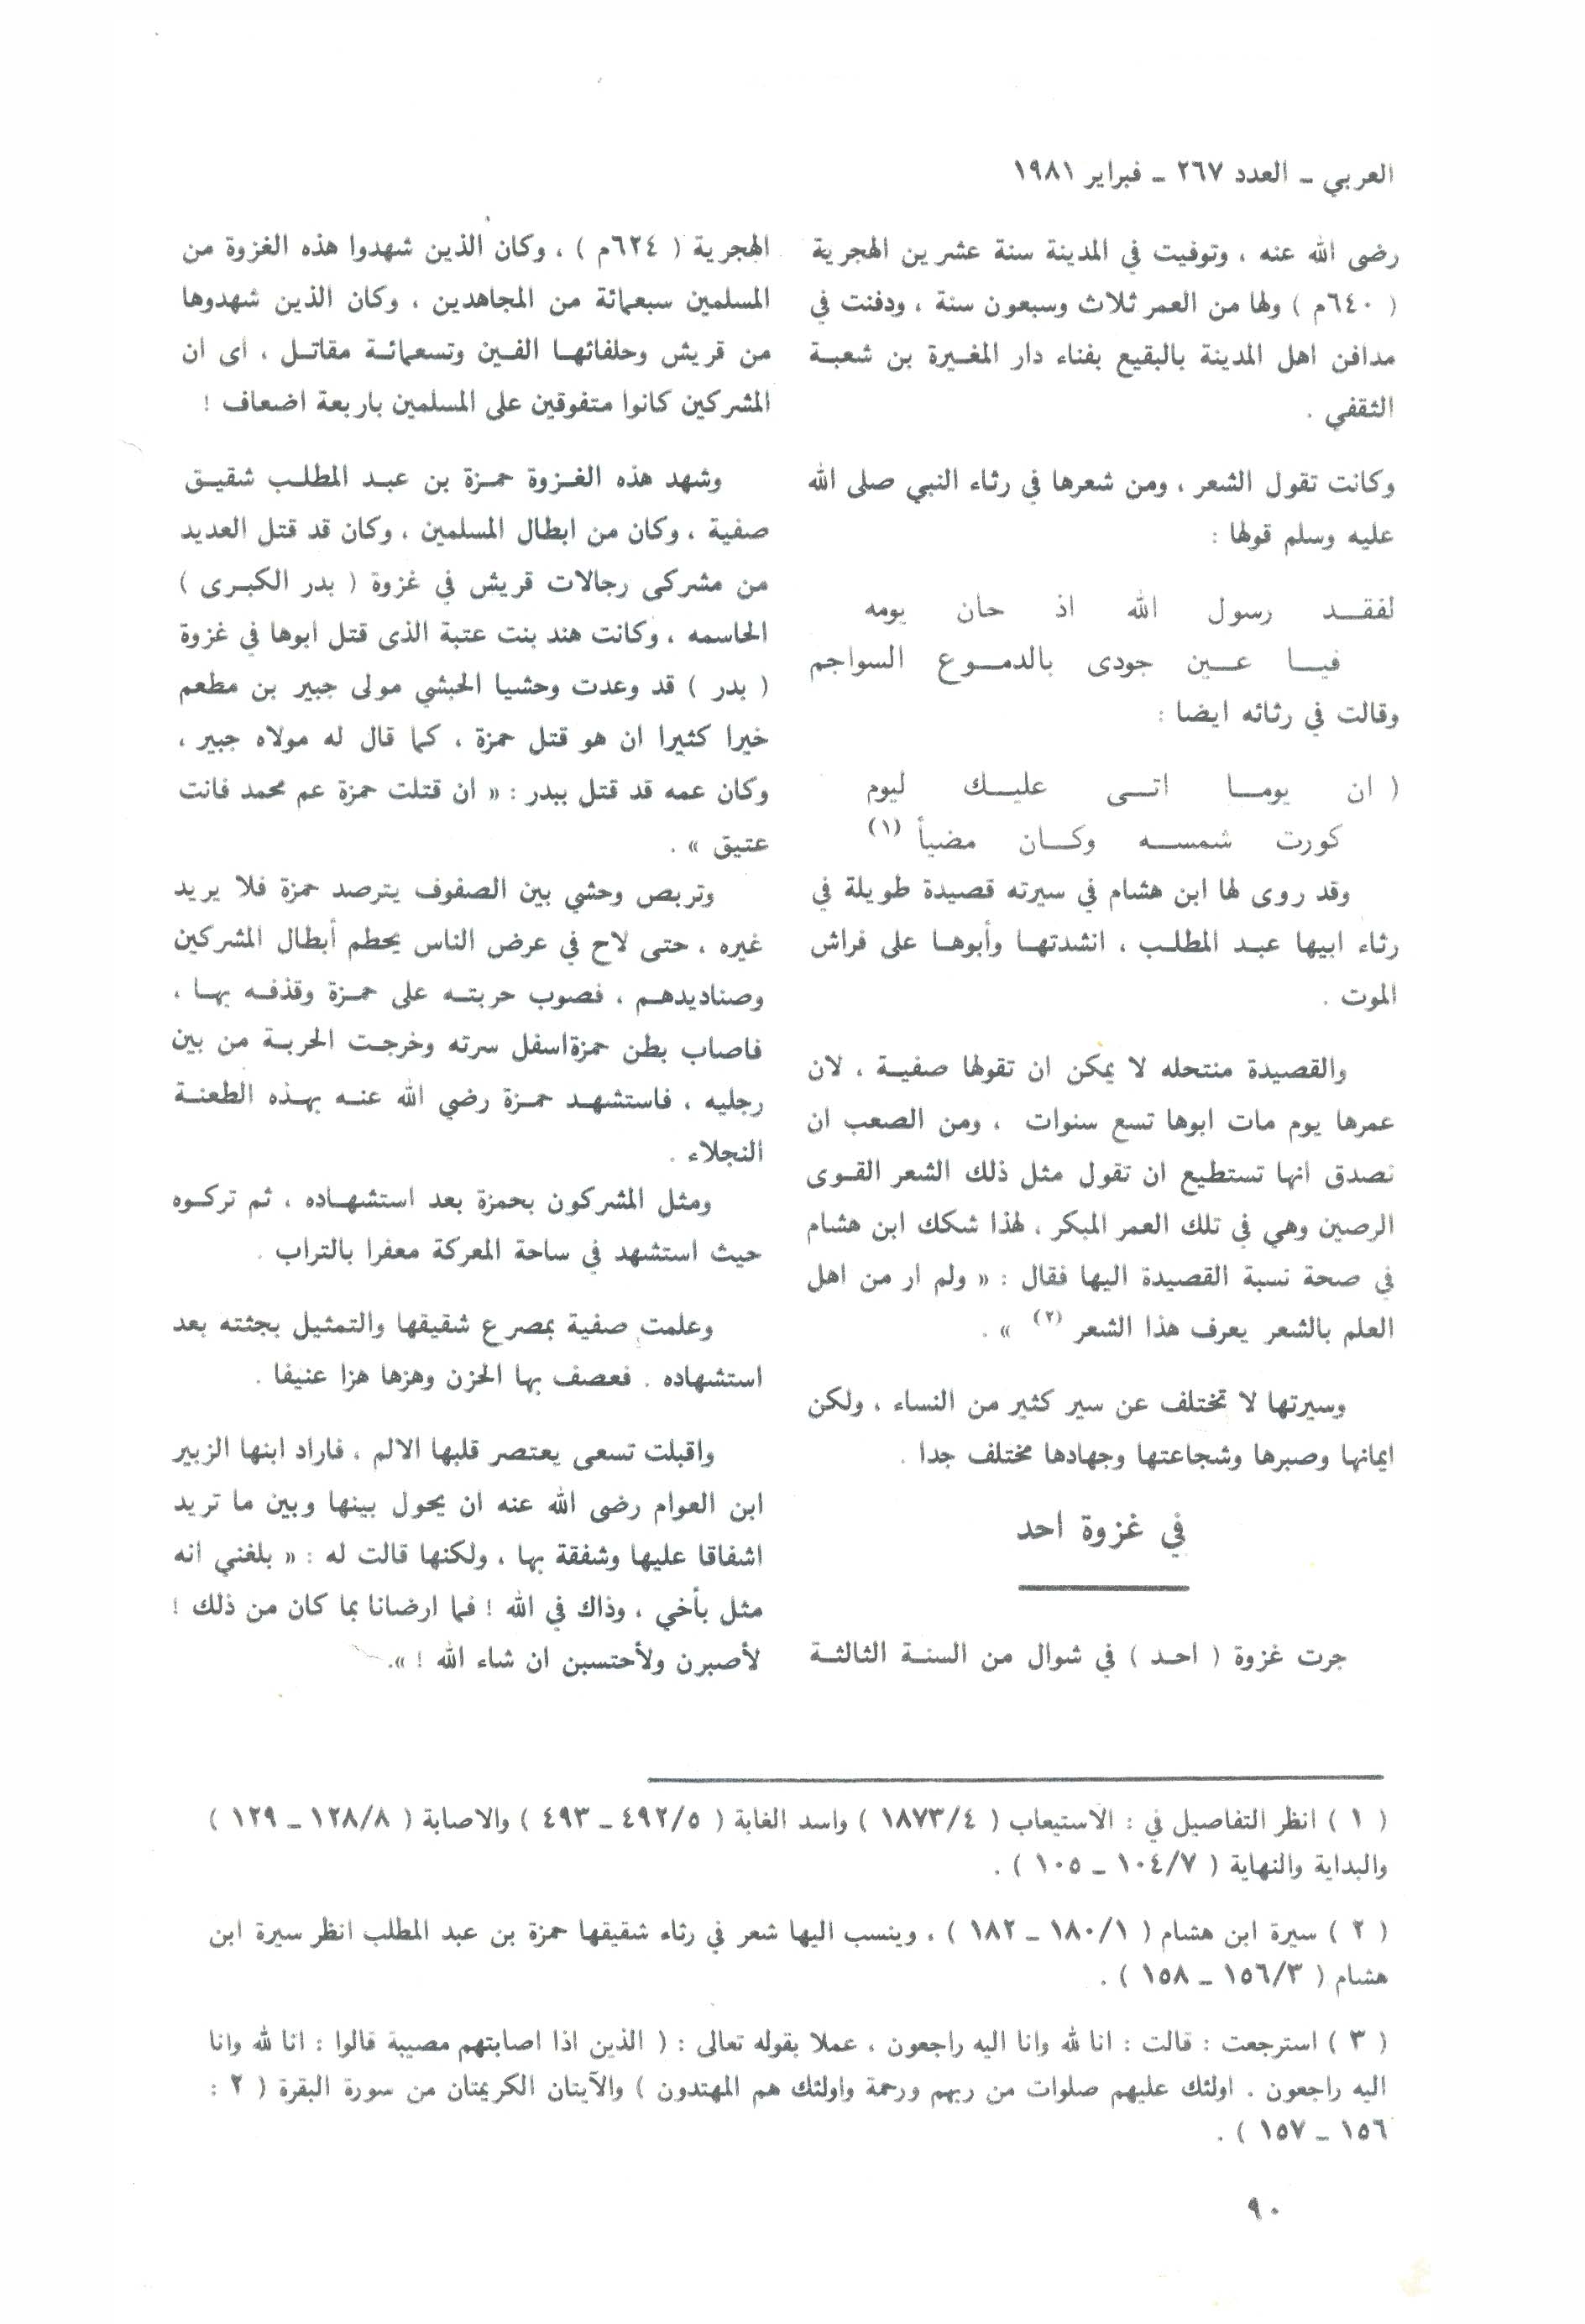 العربي ـ العدد ٢٦٧ ـ فبراير ١٩٨١
رضى الله عنه ، وتوفيت في المدينة سنة عشرين الهجرية
( ٦٤٠م ) ولها من العمر ثلاث وسبعون سنة ، ودفنت في
مدافن اهل المدينة بالبقيع بفناء دار المغيرة بن شعبة
الثقفي .
وكانت تقول الشعر ، ومن شعرها في رثاء النبي صلى الله
عليه وسلم قولها :
لفقد رسول الله اذ حان يومه
فيا عين جودى بالدموع السواجم
وقالت في رثائه ايضا :
( ان يوما اتى عليك ليوم
كورت شمسه وكان مضيأ (١)
وقد روى لها ابن هشام في سيرته قصيدة طويلة في
رثاء ابيها عبد المطلب ، انشدتها وأبوها على فراش
الموت .
والقصيدة منتحله لا يمكن ان تقولها صفية ، لان
عمرها يوم مات ابوها تسع سنوات ، ومن الصعب ان
نصدق انها تستطيع ان تقول مثل ذلك الشعر القوى
الرصين وهي في تلك العمر المبكر ، لهذا شكك ابن هشام
في صحة نسبة القصيدة اليها فقال : « ولم ار من اهل
العلم بالشعر يعرف هذا الشعر (٢) » .
وسيرتها لا تختلف عن سير كثير من النساء ، ولكن
ايمانها وصبرها وشجاعتها وجهادها مختلف جدا .
في غزوة احد
جرت غزوة ( احد ) في شوال من السنة الثالثة
الهجرية ( ٦٢٤م ) ، وكان الذين شهدوا هذه الغزوة من
المسلمين سبعمائة من المجاهدين ، وكان الذين شهدوها
من قريش وحلفائها الفين وتسعمائة مقاتل ، اى ان
المشركين كانوا متفوقين على المسلمين باربعة اضعاف !
وشهد هذه الغزوة حمزة بن عبد المطلب شقيق
صفية ، وكان من ابطال المسلمين ، وكان قد قتل العديد
من مشركى رجالات قريش في غزوة ( بدر الكبرى )
الحاسمه ، وكانت هند بنت عتبة الذى قتل ابوها في غزوة
( بدر ) قد وعدت وحشيا الحبشي مولى جبير بن مطعم
خيرا كثيرا ان هو قتل حمزة ، كما قال له مولاه جبير ،
وكان عمه قد قتل ببدر : « ان قتلت حمزة عم محمد فانت
عتيق » .
وتربص وحشي بين الصفوف يترصد حمزة فلا يريد
غيره ، حتى لاح في عرض الناس يحطم أبطال المشركين
وصناديدهم ، فصوب حربته على حمزة وقذفه بها ،
فاصاب بطن حمزةاسفل سرته وخرجت الحربة من بين
رجليه ، فاستشهد حمزة رضي الله عنه بهذه الطعنة
النجلاء .
ومثل المشركون بحمزة بعد استشهاده ، ثم تركوه
حيث استشهد في ساحة المعركة معفرا بالتراب .
وعلمت صفية بمصرع شقيقها والتمثيل بجثته بعد
استشهاده . فعصف بها الحزن وهزها هزا عنيفا .
واقبلت تسعى يعتصر قلبها الالم ، فاراد ابنها الزبير
ابن العوام رضى الله عنه ان يحول بينها وبين ما تريد
اشفاقا عليها وشفقة بها ، ولكنها قالت له : « بلغني انه
مثل بأخي ، وذاك في الله ! فما ارضانا بما كان من ذلك !
لأصبرن ولأحتسبن ان شاء الله ! ».
( ١ ) انظر التفاصيل في : الاستيعاب ( ١٨٧٣/٤ ) واسد الغابة ( ٤٩٢/٥ ـ ٤٩٣ ) والاصابة ( ١٢٨/٨ ـ ١٢٩ )
والبداية والنهاية ( ١٠٤/٧ ـ ١٠٥ ) .
( ٢ ) سيرة ابن هشام ( ١٨٠/١ ـ ١٨٢ ) ، وينسب اليها شعر في رثاء شقيقها حمزة بن عبد المطلب انظر سيرة ابن
هشام ( ١٥٦/٣ ـ ١٥٨ ) .
( ٣ ) استرجعت : قالت : انا لله وانا اليه راجعون ، عملا بقوله تعالى : ( الذين اذا اصابتهم مصيبة قالوا : انا لله وانا
اليه راجعون . اولئك عليهم صلوات من ربهم ورحمة واولئك هم المهتدون ) والآيتان الكريمتان من سورة البقرة ( ٢ :
١٥٦ ـ ١٥٧ ) .
٩٠